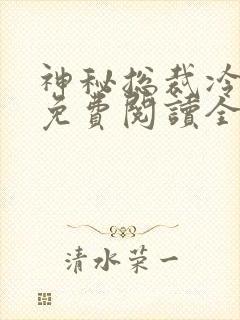 神秘总裁冷
免費閱讀全
清水荣一